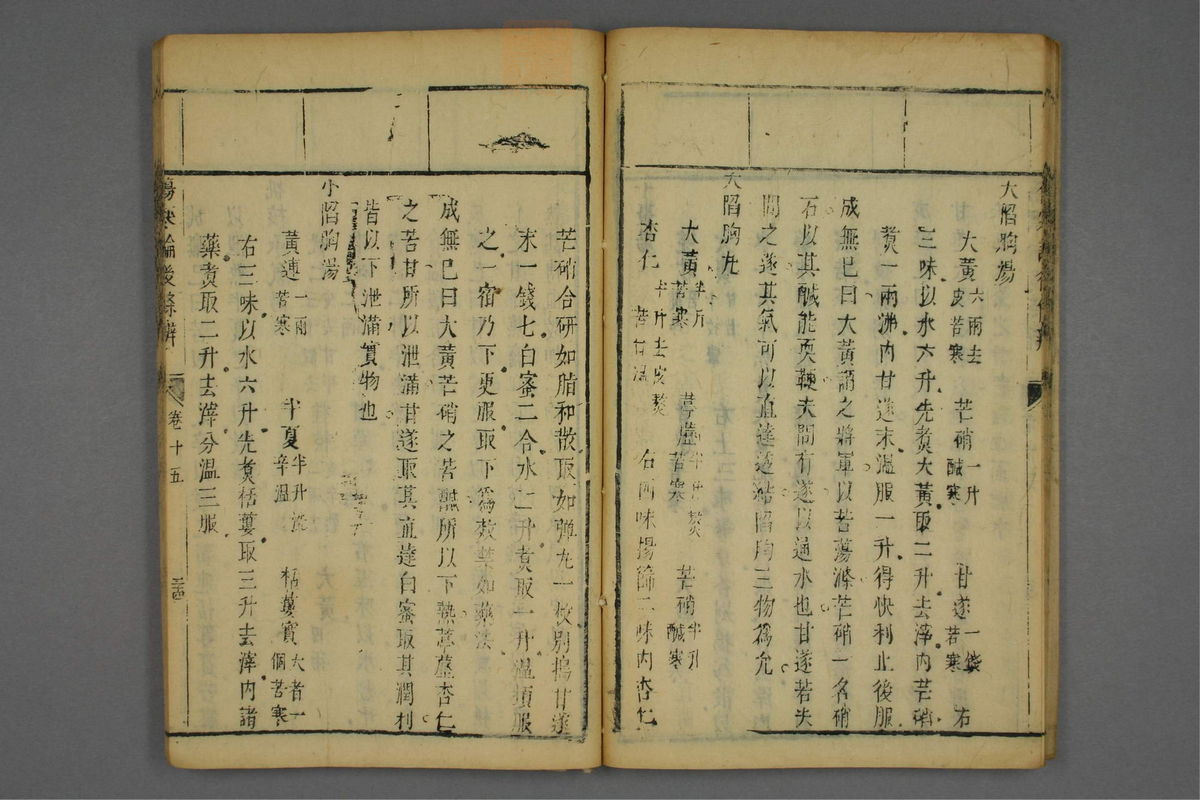 大陷胸湯
大黃六兩去皮苦寒 芒硝一升鹹寒 甘遂一錢苦寒 右
三味以水六升先煑大黃取二升去滓內芒硝
煑一兩沸內甘遂末溫服一升得快利止後服
成無巳曰大黃謂之將軍以苦蕩滌芒硝一名硝
石以其鹹能耎鞕夫間有遂以通水也甘遂若夫
間之遂其氣可以直達透結陷胸三物爲允
大陷胸丸
大黃半斤苦寒 葶藶半升熬苦寒 芒硝半升鹹寒
杏仁半升去皮熬苦甘溫 右四味搗篩二味內杏仁
芒硝合研如脂和散取如弹丸一枚別搗甘遂
末一錢七白蜜二合水二升煑取一升溫頓服
之一宿乃下更服取下爲效禁如藥法
成無巳曰大黃芒硝之苦鹹所以下熱葶藶杏仁
之苦甘所以泄滿甘遂取其直達白蜜取其潤利
皆以下泄滿實物也
小陷胸湯
黃連一兩苦寒 半夏半升洗辛溫 栝蔞實大者一個苦寒
右三味以水六升先煑栝蔞取三升去滓內諸
藥煑取二升去滓分溫三服
傷寒論後條辨 卷十五